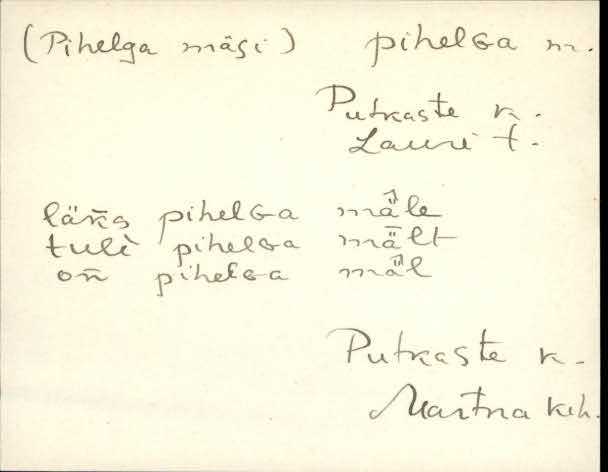 (Pihelga mägi) pihelGa m.
Putkaste k.
Lauri t.
lähs pihelGa mä̂le
tuli pihelGa mǟlt
on̄ pihelGa mä̂l
Putkaste k.
Martna kih.